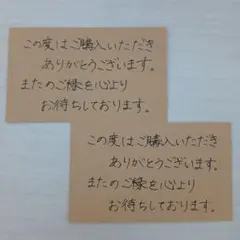 この度はご購入いただき
ありがとうございます。
またのご縁を心より
お待ちしております。
この度はご購入いただき
ありがとうございます。
またのご縁を心より
お待ちしております。